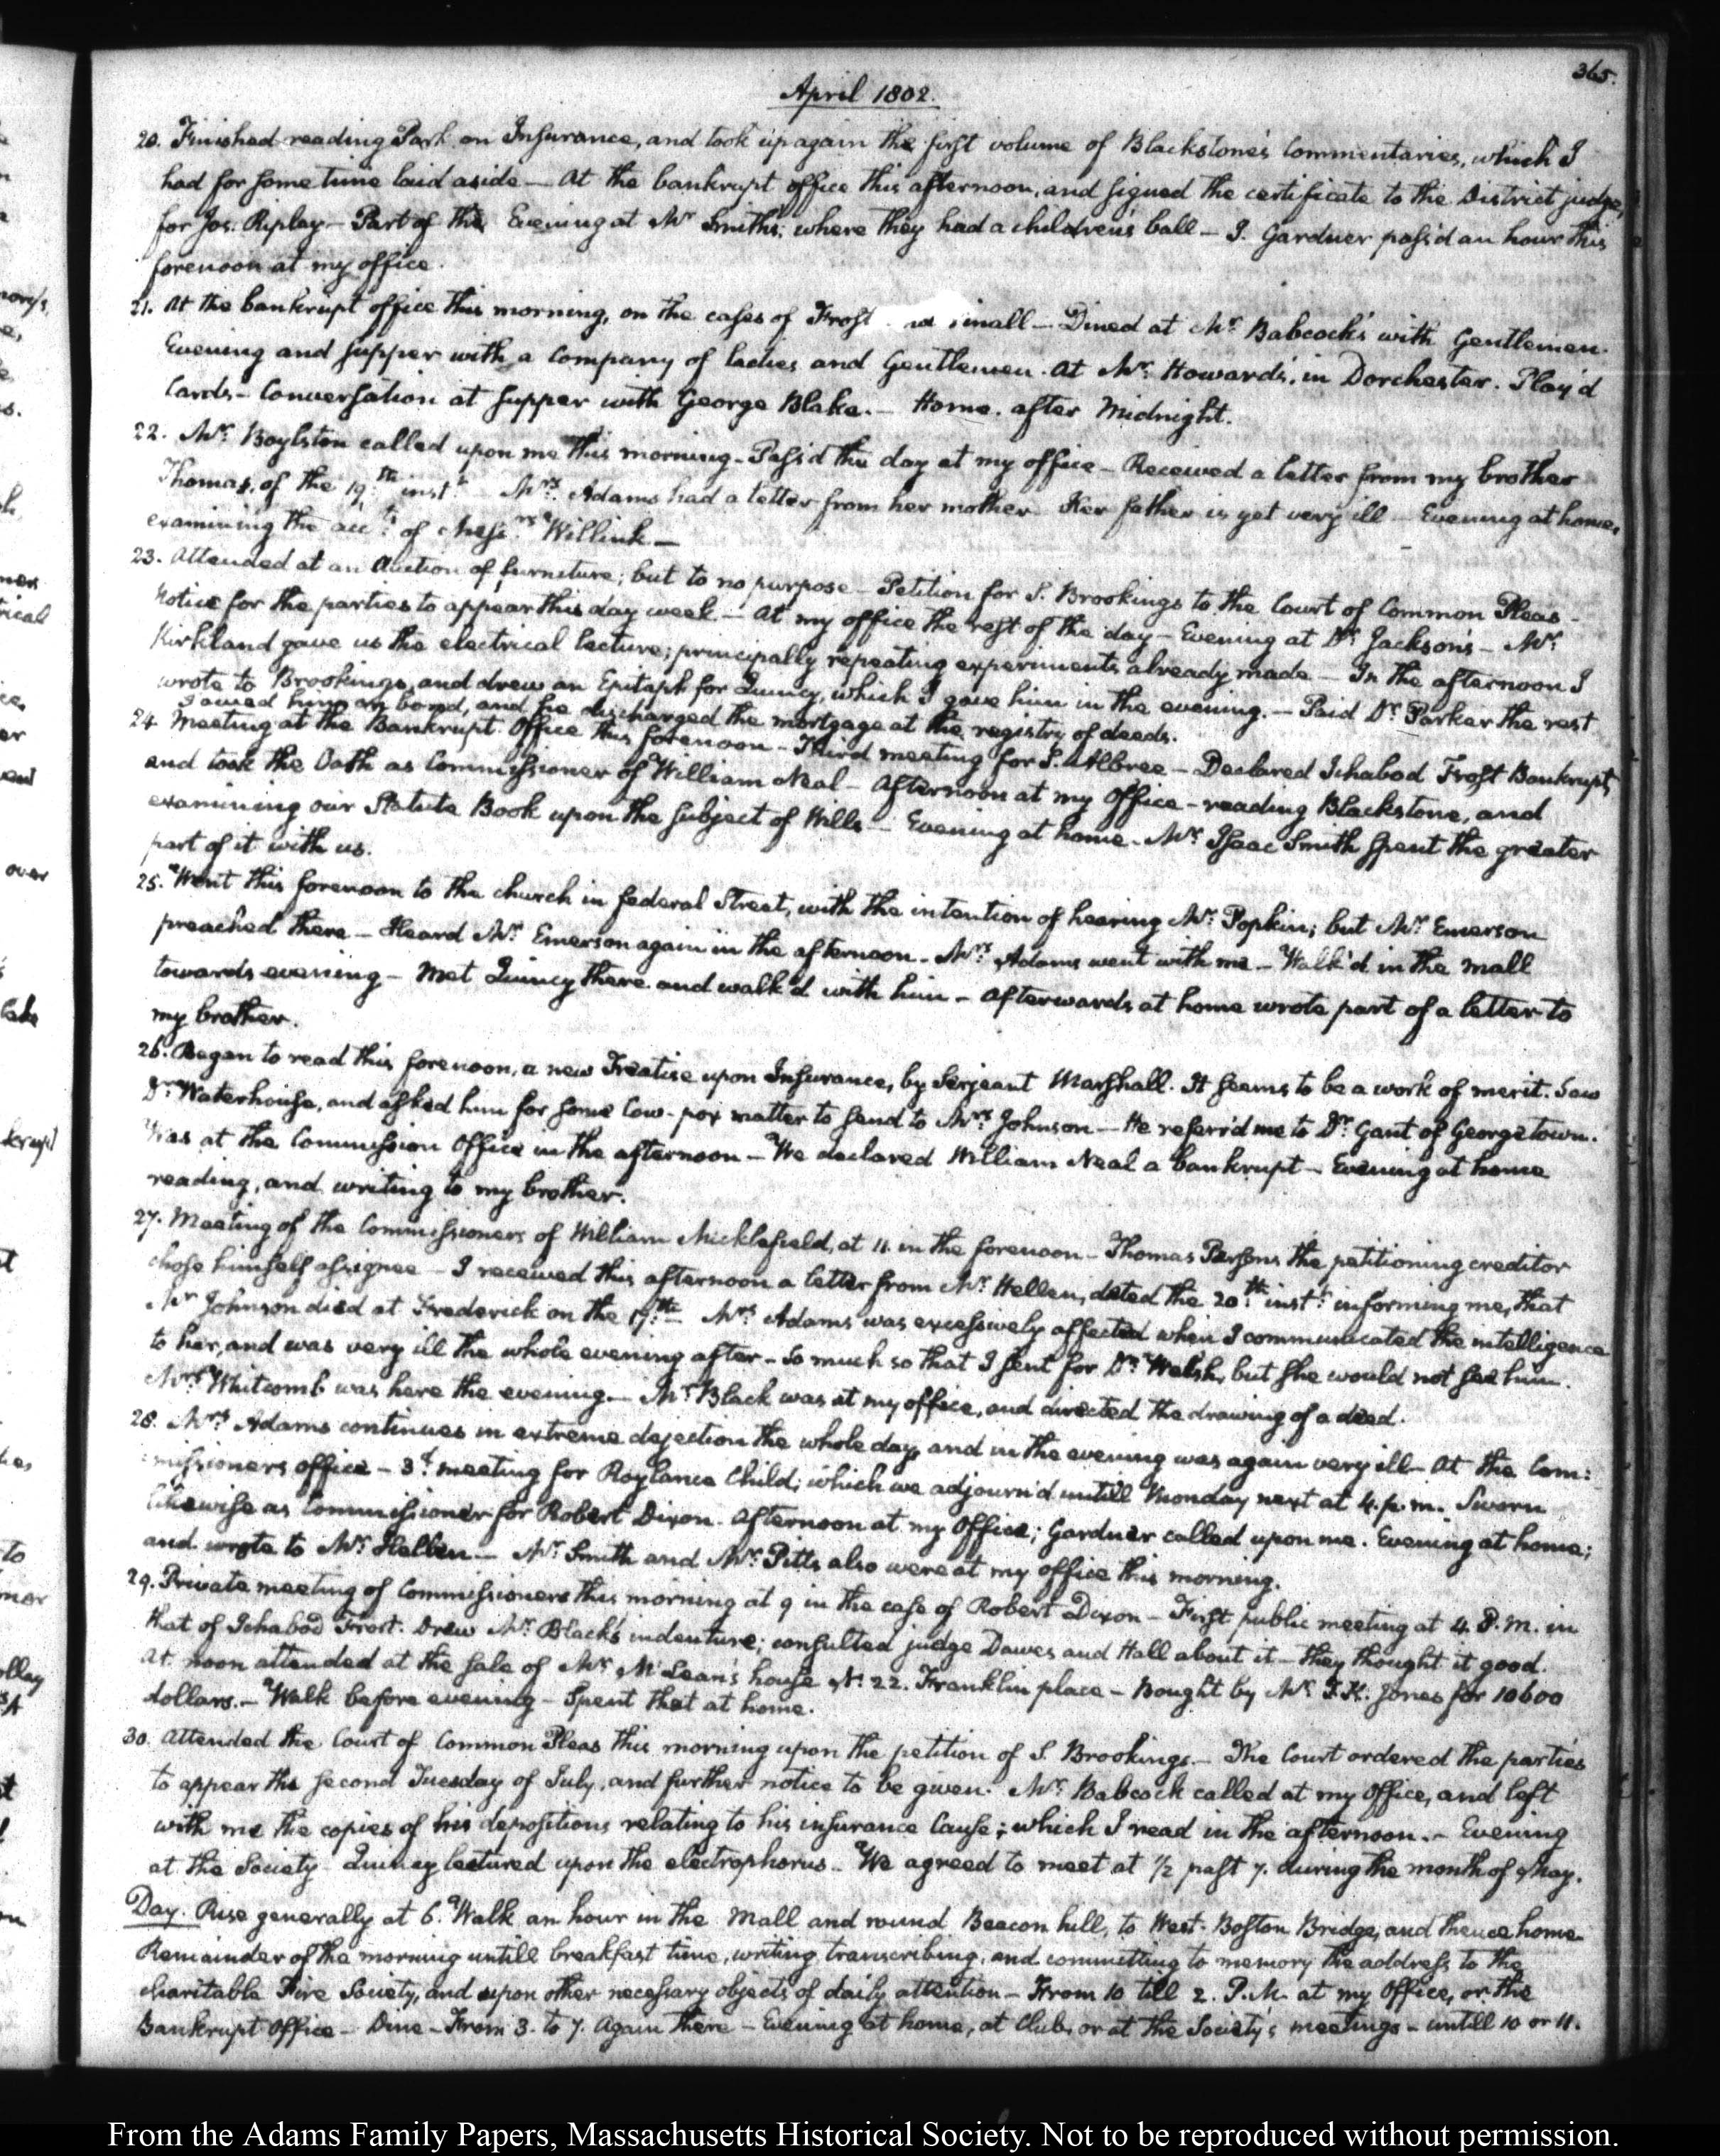 365.
April 1802.
20. Finished reading Park on Insurance, and took up again the first volume of Blackstone's Commentaries, which I
had for some time laid aside — At the bankrupt office this afternoon, and signed the certificate to the District judge,
for Jos. Ripley — Part of the Evening at Mr. Smith's; where they had a children's ball — J. Gardner pass'd an hour this
forenoon at my office.
21. At the bankrupt office this morning, on the cases of Frost small — Dined at Mr. Babcock's with Gentlemen.
Evening and supper with a Company of ladies and Gentlemen. At Mr. Howard's, in Dorchester. Play'd
Cards — Conversation at supper with George Blake. — Home. after Midnight.
22. Mr. Boylston called upon me this morning — Pass'd the day at my office — Received a letter from my brother
Thomas, of the 19th. inst. — Mrs. Adams had a letter from her mother. Her father is yet very ill — Evening at home,
examining the acct. of Messrs. Willink —
23. Attended at an Auction of furniture; but to no purpose — Petition for S. Brookings to the Court of Common Pleas —
Notice for the parties to appear this day week — At my office the rest of the day — Evening at Dr. Jackson's — Mr.
Kirkland gave us the electrical lecture; principally repeating experiments already made — In the afternoon I
wrote to Brookings, and drew an Epitaph for Quincy, which I gave him in the evening. — Paid Dr. Parker the rest
I owed him on bond, and he discharged the mortgage at the registry of deeds.
24. Meeting at the Bankrupt Office this forenoon — Third meeting for S. Albree — Declared Ichabod Frost Bankrupt,
and took the Oath as Commissioner of William Neal — Afternoon at my Office — reading Blackstone, and
examining our Statute Book upon the subject of Wills — Evening at home. Mr. Isaac Smith spent the greater
part of it with us.
25. Went this forenoon to the church in federal Street, with the intention of hearing Mr. Popkin; but Mr. Emerson
preached there — Heard Mr. Emerson again in the afternoon. Mrs. Adams went with me — Walk'd in the mall
towards evening — Met Quincy there and walk'd with him — Afterwards at home wrote part of a letter to
my brother.
26. Began to read this forenoon, a new Treatise upon Insurance, by Serjeant Marshall. It seems to be a work of merit. Saw
Dr. Waterhouse, and asked him for some Cow-pox matter to send to Mrs. Johnson — He referr'd me to Dr. Gant of Georgetown.
Was at the Commission Office in the afternoon — We declared William Neal a bankrupt — Evening at home
reading, and writing to my brother.
27. Meeting of the Commissioners of William Micklefield, at 11. in the forenoon — Thomas Parsons the petitioning creditor
chose himself assignee — I received this afternoon a letter from Mr. Hellen, dated the 20th. inst. informing me, that
Mr. Johnson died at Frederick on the 17th. — Mrs. Adams was excessively affected when I communicated the intelligence
to her, and was very ill the whole evening after — So much so that I sent for Dr. Welsh, but she would not see him.
Mrs. Whitcomb was here the evening. — Mr. Black was at my office, and directed the drawing of a deed.
28. Mrs. Adams continues in extreme dejection the whole day, and in the evening was again very ill — At the Com:
missioners office — 3d. meeting for Roylance Child; which we adjourn'd untill Monday next at 4. p.m. Sworn
likewise as Commissioner for Robert Dixon. Afternoon at my Office; Gardner called upon me. Evening at home;
and wrote to Mr. Hellen — Mr. Smith and Mr. Pitts also were at my office this morning.
29. Private meeting of Commissioners this morning at 9 in the case of Robert Dixon — First public meeting at 4. P.M. in
that of Ichabod Frost. Drew Mr. Black's indenture; consulted judge Dawes and Hall about it — they thought it good.
At noon attended at the sale of Mr. McLean's house N. 22. Franklin place — Bought by Mr. T. K. Jones for 10600
dollars. — Walk before evening — Spent that at home.
30. Attended the Court of Common Pleas this morning upon the petition of S. Brookings. — The Court ordered the parties
to appear the second Tuesday of July, and further notice to be given. Mr. Babcock called at my Office, and left
with me the copies of his depositions relating to his insurance Cause; which I read in the afternoon. — Evening
at the Society — Quincy lectured upon the electrophorus — We agreed to meet at 1/2 past 7. during the month of May.
Day. Rise generally at 6. Walk an hour in the Mall and round Beacon hill, to West-Boston Bridge, and thence home.
Remainder of the morning untill breakfast time, writing, transcribing, and committing to memory the address to the
charitable Fire Society, and upon other necessary objects of daily attention — From 10 till 2. P.M. at my Office, or the
Bankrupt Office — Dine — From 3. to 7. Again there — Evening at home, at Club, or at the Society's meetings — untill 10 or 11.
From the Adams Family Papers, Massachusetts Historical Society. Not to be reproduced without permission.